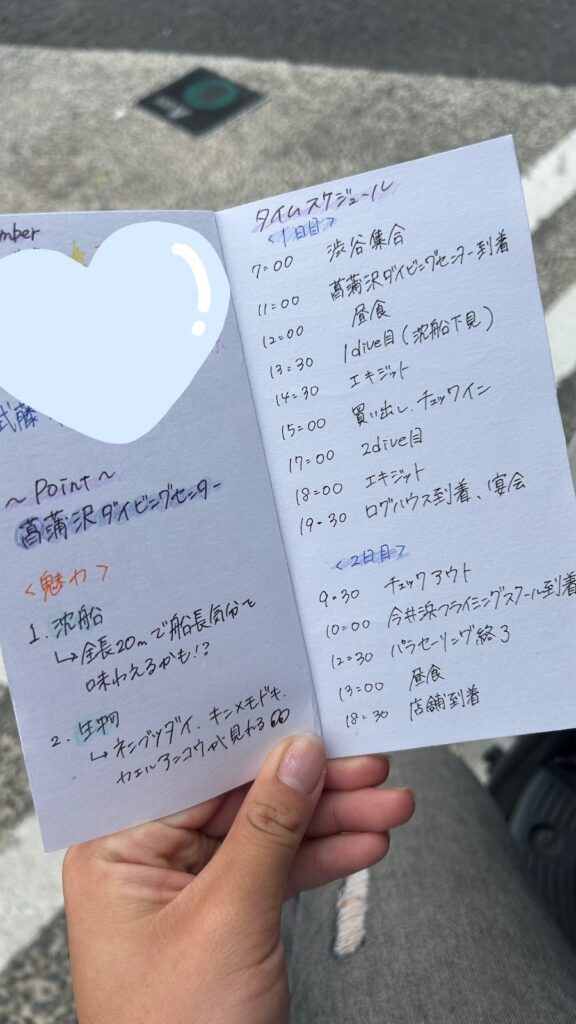 mber
武藤
～Point～
菖蒲沢ダイビングセンター
＜魅力＞
1. 沈船
↳全長20mで船長気分を
味わえるかも!?
2. 生物
↳ネンブツダイ、キンメモドキ、
カエルアンコウが見れる
タイムスケジュール
＜1日目＞
7:00 渋谷集合
11:00 菖蒲沢ダイビングセンター到着
12:00 昼食
13:30 1dive目(沈船下見)
14:30 エキジット
15:00 買い出し、チェックイン
17:00 2dive目
18:00 エキジット
19:30 ログハウス到着、宴会
＜2日目＞
9:30 チェックアウト
10:00 今井浜フライングスクール到着
12:30 パラセーリング終了
13:00 昼食
18:30 店舗到着